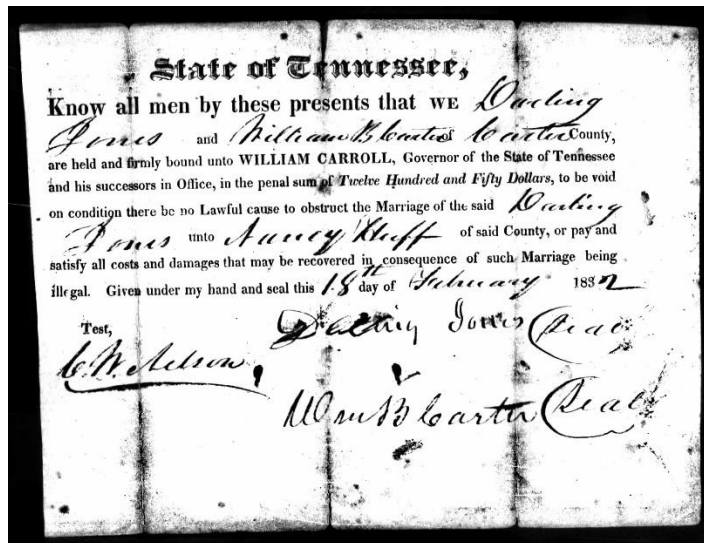 State of Tennessee,
Know all men by these presents that WE Darling
Jones and William B Carter of Carter County,
are held and firmly bound unto WILLIAM CARROLL, Governor of the State of Tennessee
and his successors in Office, in the penal sum of Twelve Hundred and Fifty Dollars, to be void
on condition there be no Lawful cause to obstruct the Marriage of the said Darling
Jones unto Nancy Huff of said County, or pay and
satisfy all costs and damages that may be recovered in consequence of such Marriage being
illegal. Given under my hand and seal this 18th day of February 1832
Test, Darling Jones (Seal)
C. W. Nelson
Wm B Carter (Seal)